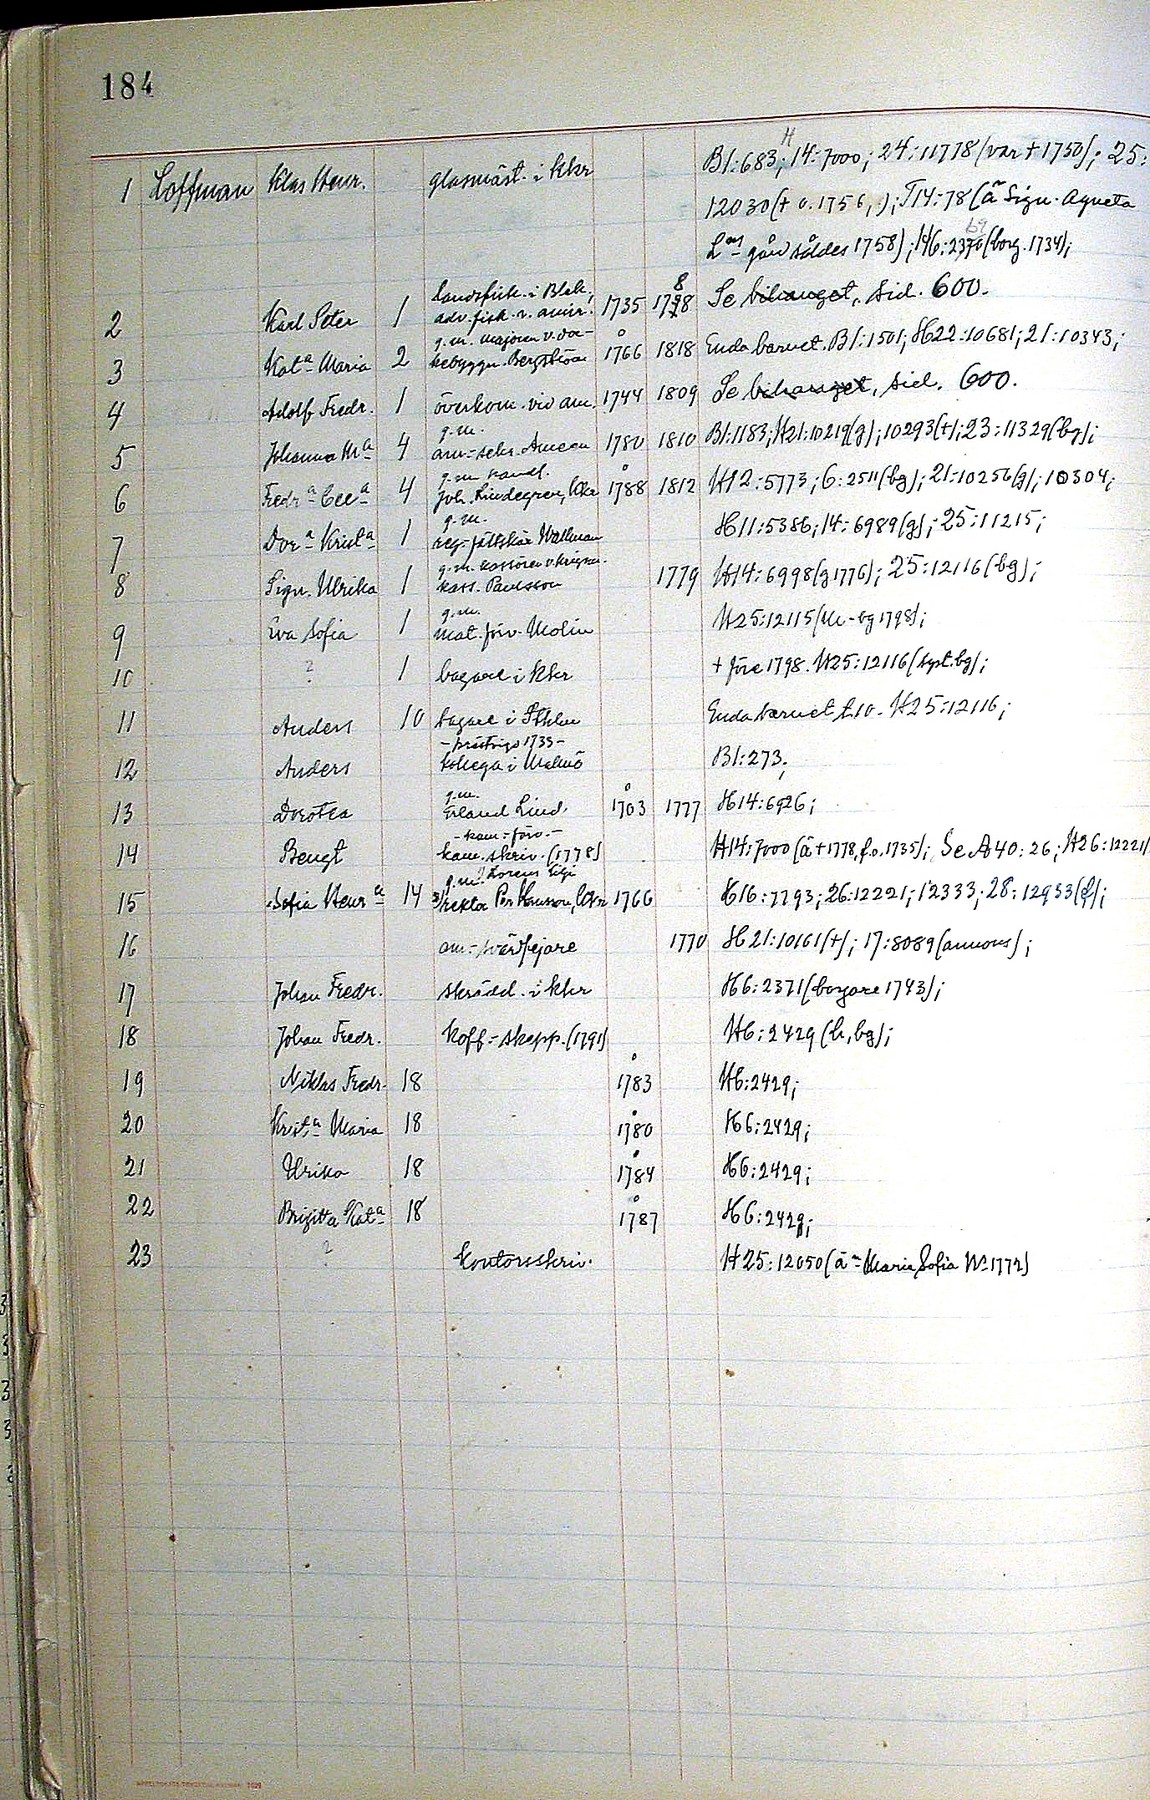 184
1 Loffman Klas Henr. glasmäst. i Kkr Bl:683; H 14:7000; 24:11778 (var + 1750); 25:
12030 (+ o. 1756,); T14:78 (ä Sign. Agneta
L:as gård såldes 1758); H6:2370 (borg. 1734);
landsfisk. i Blek.,
2 Karl Peter 1 adv. fisk. v. amir. 1735 1798 8 Se bihanget, sid. 600.
g.m. majoren v. doc-
3 Kat:a Maria 2 kebyggn. Bergström 1766 1818 Enda barnet. Bl:1501; H22:10681; 21:10343;
4 Adolf Fredr. 1 överkom. vid am. 1744 1809 Se bihanget, sid. 600.
g.m.
5 Johanna M:a 4 am:-sekr. Ameen 1780 1810 Bl:1183; H21:10219(g); 10293(+); 23:11329(bg);
g.m. handl.
6 Fredr:a Cec:a 4 Joh. Lindegren, Ckr 1788 1812 H12:5773; 6:2511(bg); 21:10256(g); 10304;
g.m.
7 Dor:a Krist:a 1 reg-fältskär Wallman H11:5386; 14:6989(g); 25:11215;
g.m. kassören v. krigsm.
8 Sign. Ulrika 1 kass. Paulsson 1779 H14:6998(g 1776); 25:12116(bg);
g.m.
9 Eva Sofia 1 mat. förv. Molin H25:12115(m-bg 1798);
10 ? 1 bagare i Kkr + före 1798. H25:12116(syst. bg);
11 Anders 10 bagare i Sthlm Enda barnet t. 10. H25:12116;
- prästvigd 1733 -
12 Anders kollega i Malmö Bl:273;
g.m.
13 Dorotea Erland Lind. 1703 1777 H14:6926;
- kam-förv. -
14 Bengt kam. skriv. (1778) H14:7000 (ä + 1778, f. o. 1735); Se A40:26; H26:12221
g.m. Lorens
15 Sofia Henr:a 14 rektor Per Hansson, Ckr 1766 H16:7793; 26:12221; 12333; 28:12953(f);
16 am:-svärdfejare 1770 H21:10161(+); 17:8089(annons);
17 Johan Fredr. skrädd. i Kkr H6:2371(borgare 1743);
18 Johan Fredr. koff:-skepp. (1791) H6:2429(h, bg);
19 Niklas Fredr. 18 1783 H6:2429;
20 Krist:a Maria 18 1780 H6:2429;
21 Ulrika 18 1784 H6:2429;
22 Brigitta Kat:a 18 1787 H6:2429;
23 ? kontorsskriv. H25:12050 (ä:n Maria Sofia W: 1772)